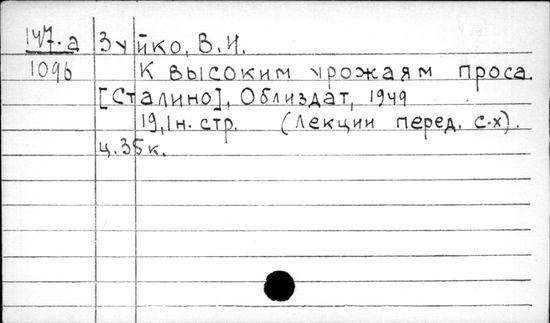 147.а Зуйко, В.И.
1096 К высоким урожаям проса.
[Сталино], Облиздат, 1949
19,1н. стр. (Лекции перед. с-х).
ц. 35к.